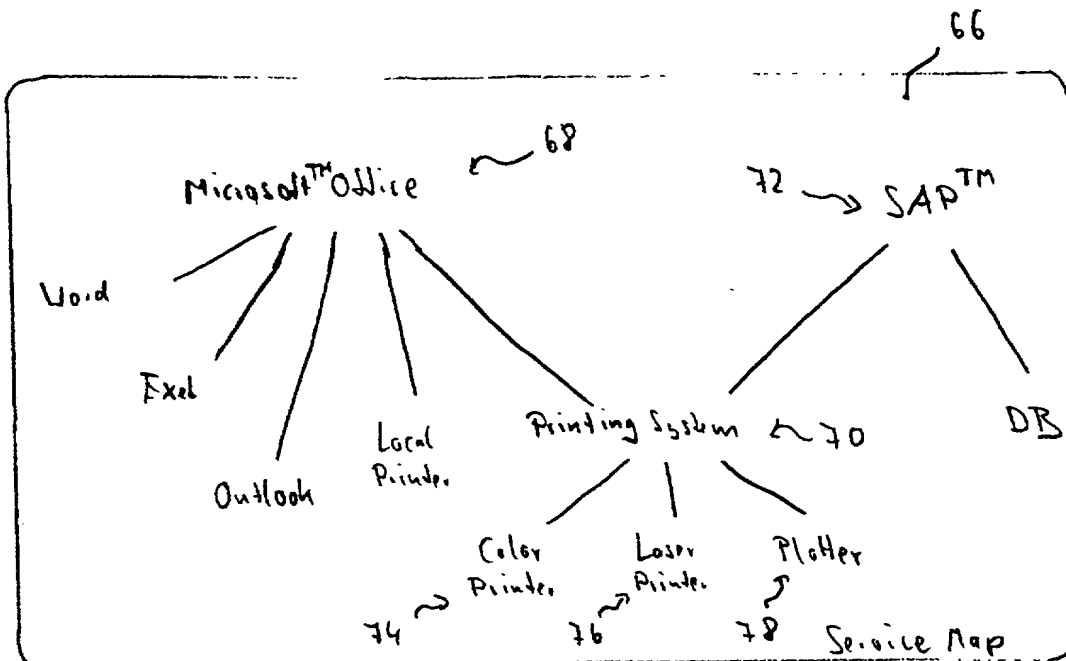 66
Microsoft™ Office
68
72
SAP™
Word
Exel
Outlook
Local
Printer
Printing System
70
DB
Color
Printer
Laser
Printer
Plotter
74
76
78
Service Map